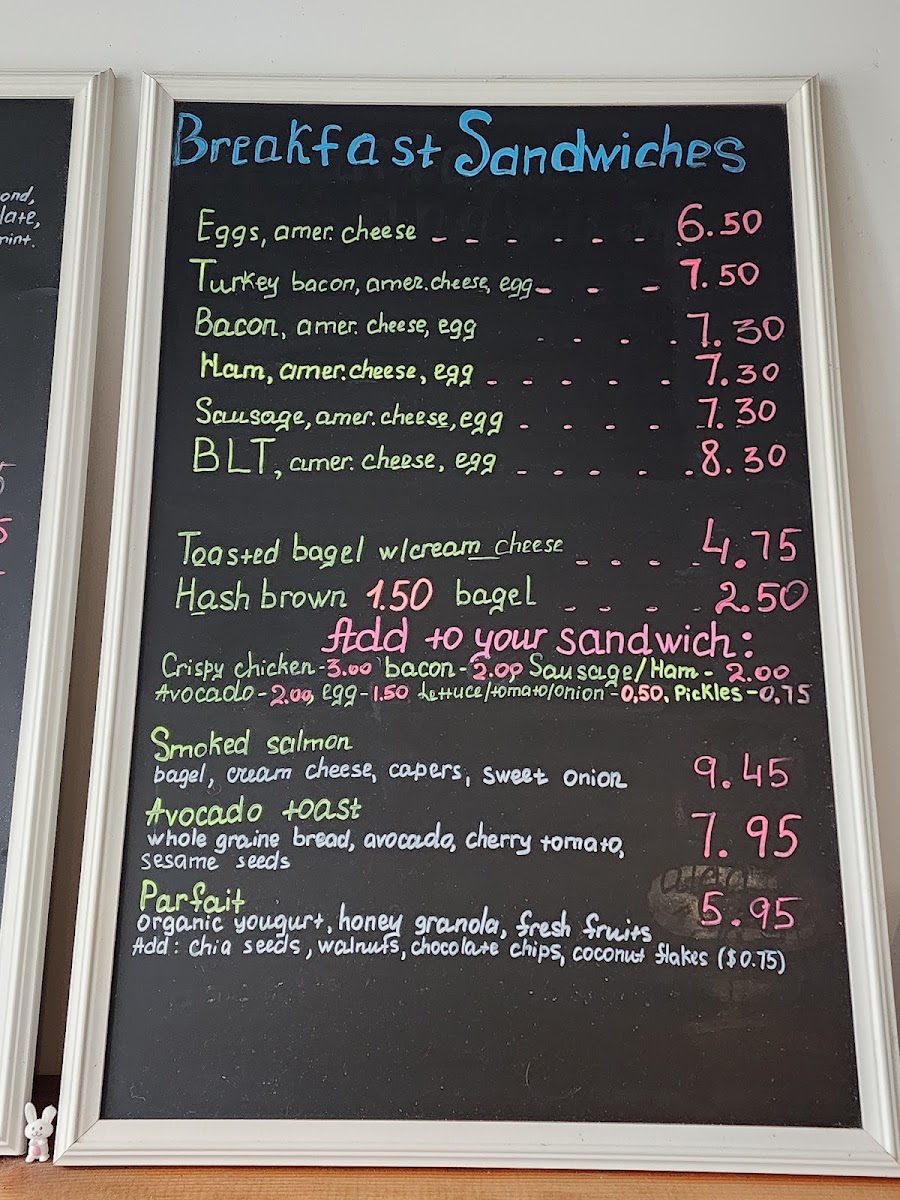 ond,
late,
mint.
5
5
Breakfast Sandwiches
Eggs, amer. cheese - - - - - - - 6.50
Turkey bacon, amer. cheese, egg - - - 7.50
Bacon, amer. cheese, egg - - - - 7.30
Ham, amer. cheese, egg - - - - - 7.30
Sausage, amer. cheese, egg - - - - 7.30
BLT, amer. cheese, egg - - - - - 8.30
Toasted bagel w/cream cheese - - - - 4.75
Hash brown 1.50 bagel - - - - 2.50
Add to your sandwich:
Crispy chicken-3.00 bacon-2.00 Sausage/Ham- 2.00
Avocado-2.00, Egg-1.50 Lettuce/tomato/onion-0.50, Pickles-0.75
Smoked salmon
bagel, cream cheese, capers, sweet onion 9.45
Avocado toast
whole graine bread, avocado, cherry tomato, 7.95
sesame seeds
Parfait
organic yougurt, honey granola, fresh fruits 5.95
Add: chia seeds, walnuts, chocolate chips, coconut flakes ($0.75)